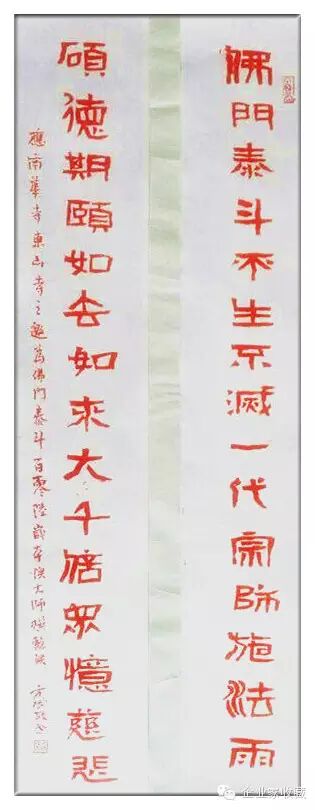 佛門泰斗不生不滅一代宗師施法雨
碩德期頤如去如來大千眾憶慈悲
應南華寺東山寺之邀為佛門泰斗百零陸歲本煥大師撰輓聯
企业家收藏